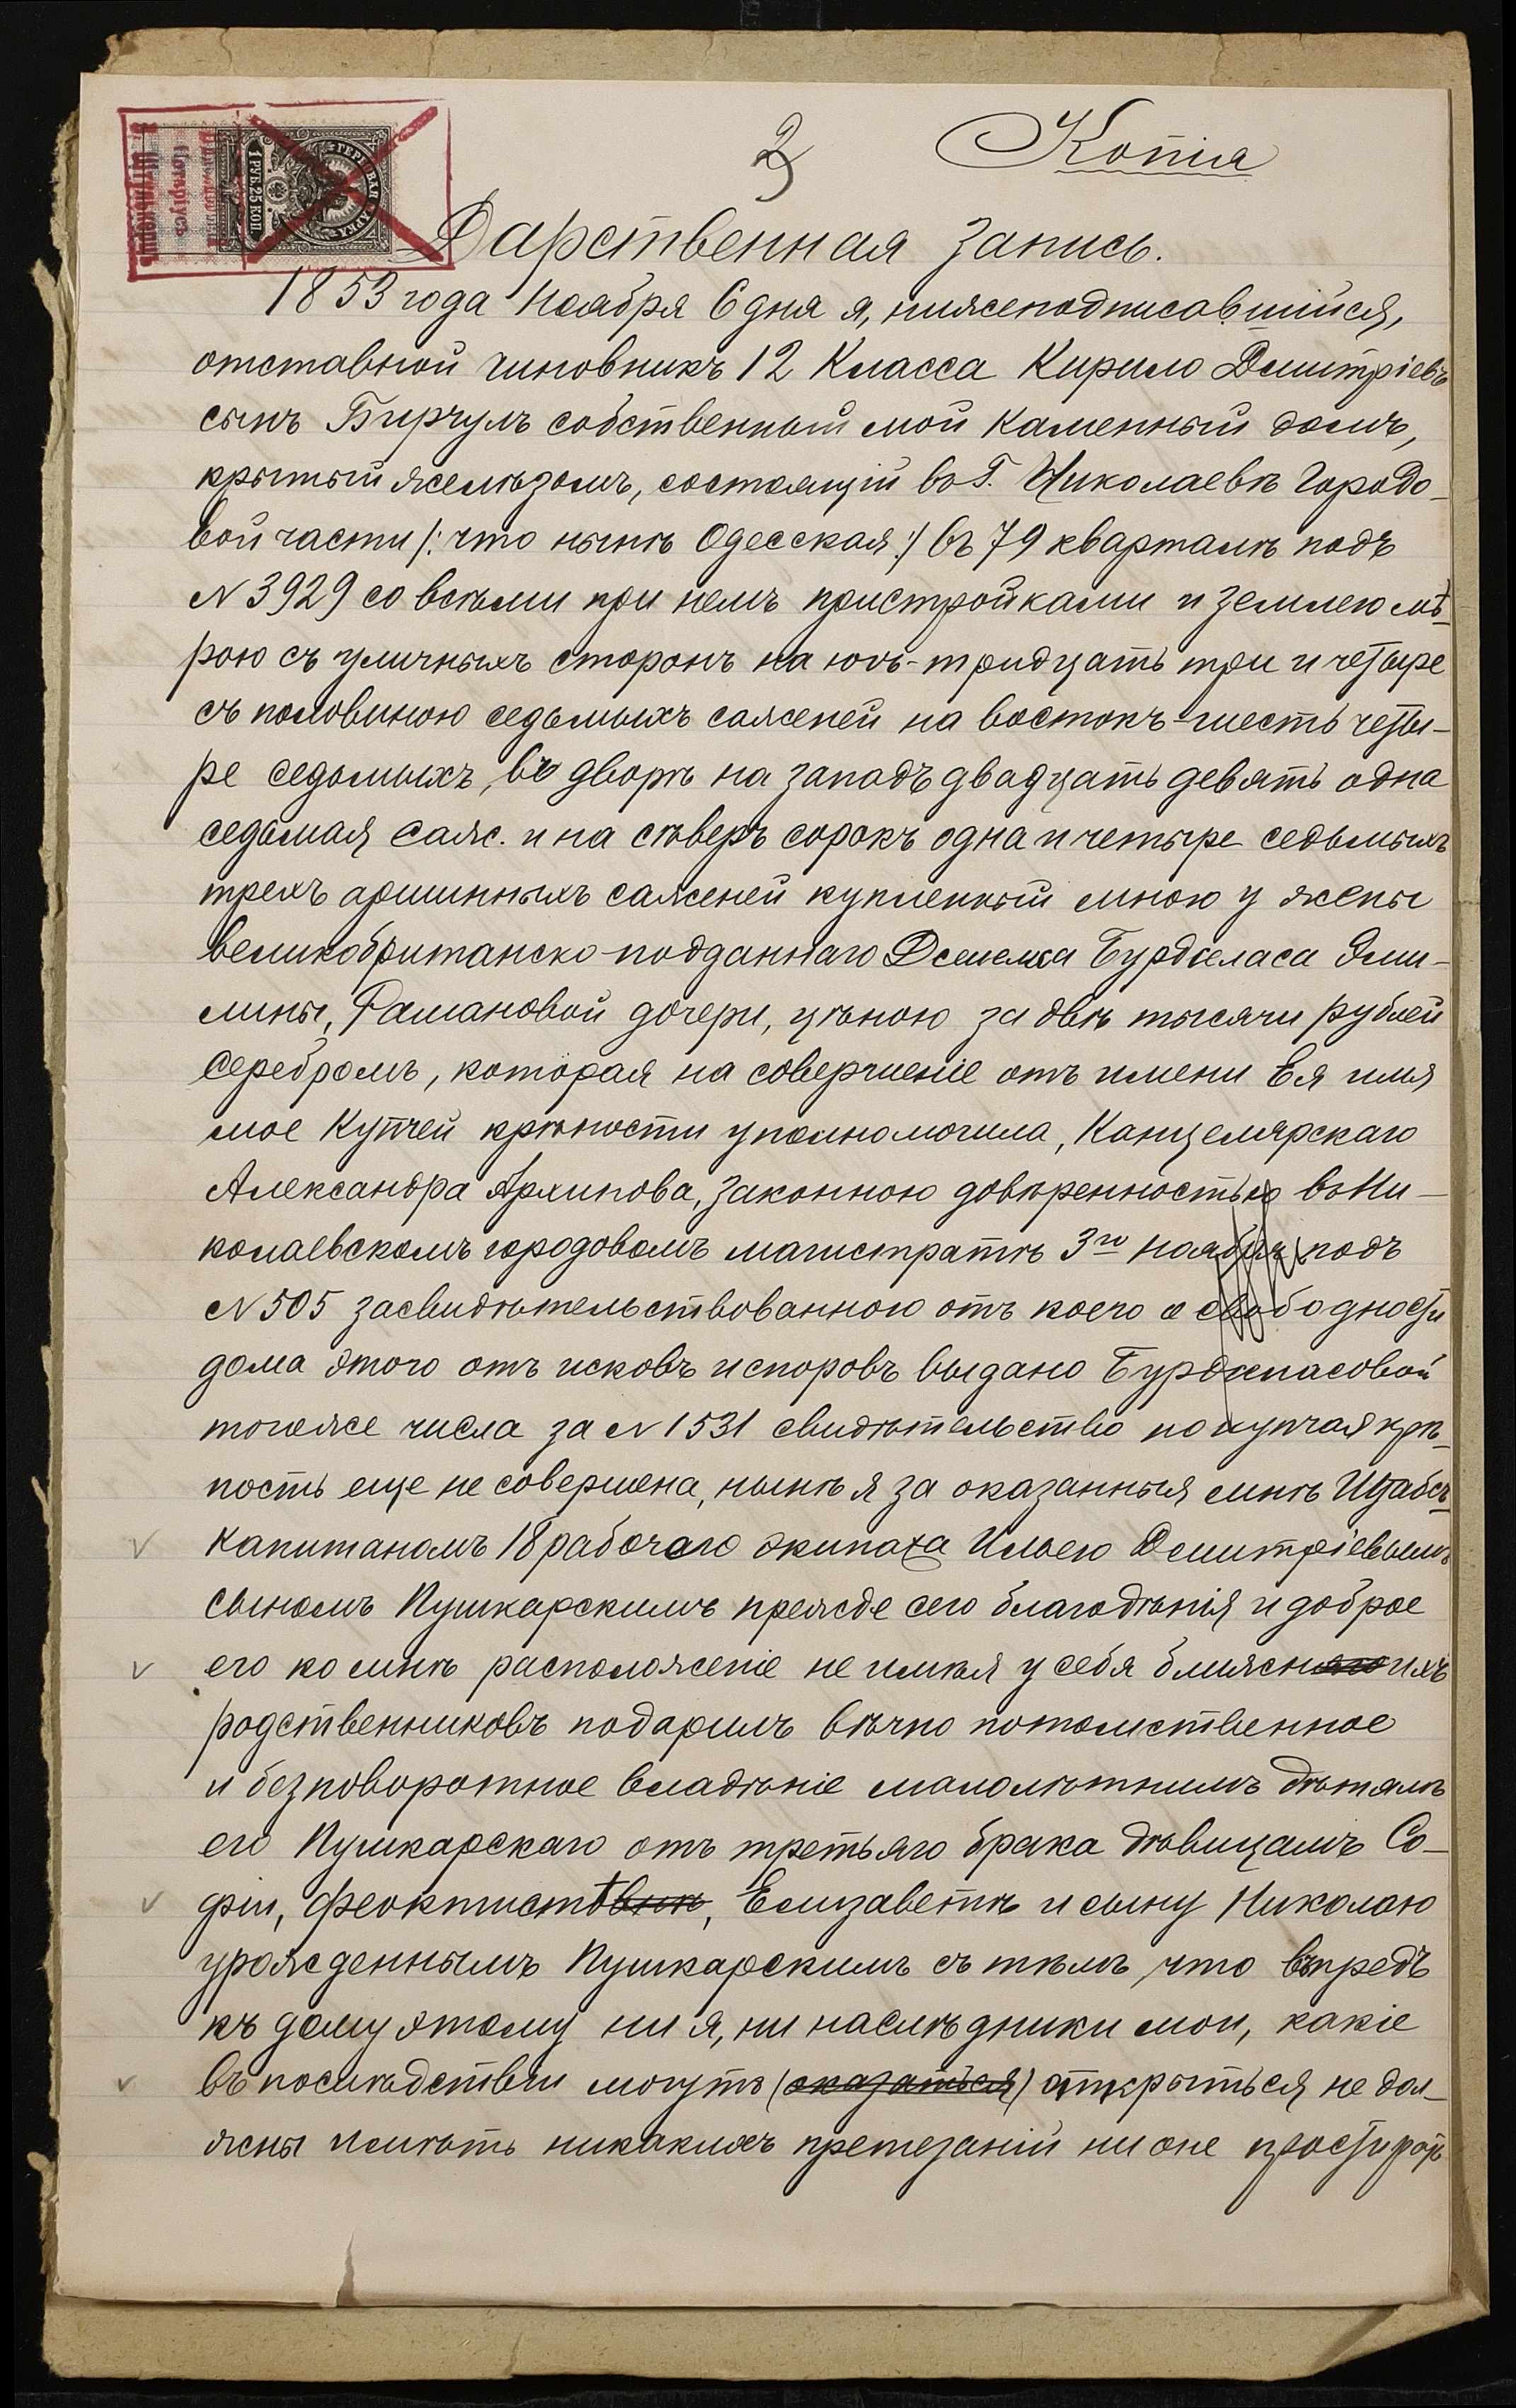 2
Копія
ГЕРБОВАЯ МАРКА
1 РУБ. 25 КОП
Нотаріусъ
Дарственная запись.
1853 года Ноября 6 дня я, нижеподписавшійся,
отставной чиновникъ 12 Класса Кирило Дмитріевъ
сынъ Бирчулъ собственный мой каменный домъ,
крытый желѣзомъ, состоящій во Г. Николаевѣ Городо-
вой части /: что нынѣ Одесская :/ въ 79 кварталѣ подъ
N 3929 со всѣми при немъ пристройками и землею мѣ-
рою съ уличныхъ сторонъ на югъ-тридцать три и четыре
съ половиною седьмыхъ саженей на востокъ-шесть четы-
ре седьмыхъ, въ дворѣ на западъ двадцать девять одна
седьмая саж. и на сѣверъ сорокъ одна и четыре седьмыхъ
трехъ аршинныхъ саженей купленный мною у жены
великобританско-подданнаго Джемса Бурджласа Эми-
лины, Рамановой дочери, цѣною за двѣ тысячи рублей
серебромъ, которая на совершеніе отъ имени Ея имя
мое Купчей крѣпости уполномочила, Канцелярскаго
Александра Архипова, законною довѣренностью въ Ни-
колаевскомъ городовомъ магистратѣ 3го ноября подъ
N 505 засвидѣтельствованною отъ коего о свободности
дома этого отъ исковъ и споровъ выдано Бурджласовой
тогоже числа за N 1531 свидѣтельство но купчая крѣ-
пость еще не совершена, нынѣ я за оказанныя мнѣ Штабсъ-
Капитаномъ 18 рабочаго экипажа Ильею Дмитріевымъ
сыномъ Пушкарскимъ прежде сего благодѣнія и доброе
его ко мнѣ расположеніе не имѣя у себя ближнихъ
родственниковъ подарилъ вѣчно потомственное
и безповоротное владѣніе малолѣтнимъ дѣтямъ
его Пушкарскаго отъ третьяго брака дѣвицамъ Со-
фіи, Феоктистѣ, Елизаветѣ и сыну Николаю
урожденнымъ Пушкарскимъ съ тѣмъ, что впредь
къ дому этому ни я, ни наслѣдники мои, какіе
въ послѣдствіи могутъ (оказаться) открыться не дол-
жны имѣть никакихъ претезаній ни оне простират